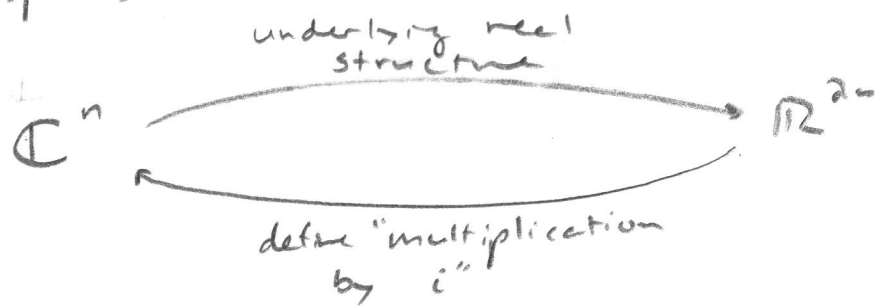 underlying real
structure
ℂⁿ
ℝ²ⁿ
define "multiplication
by i"